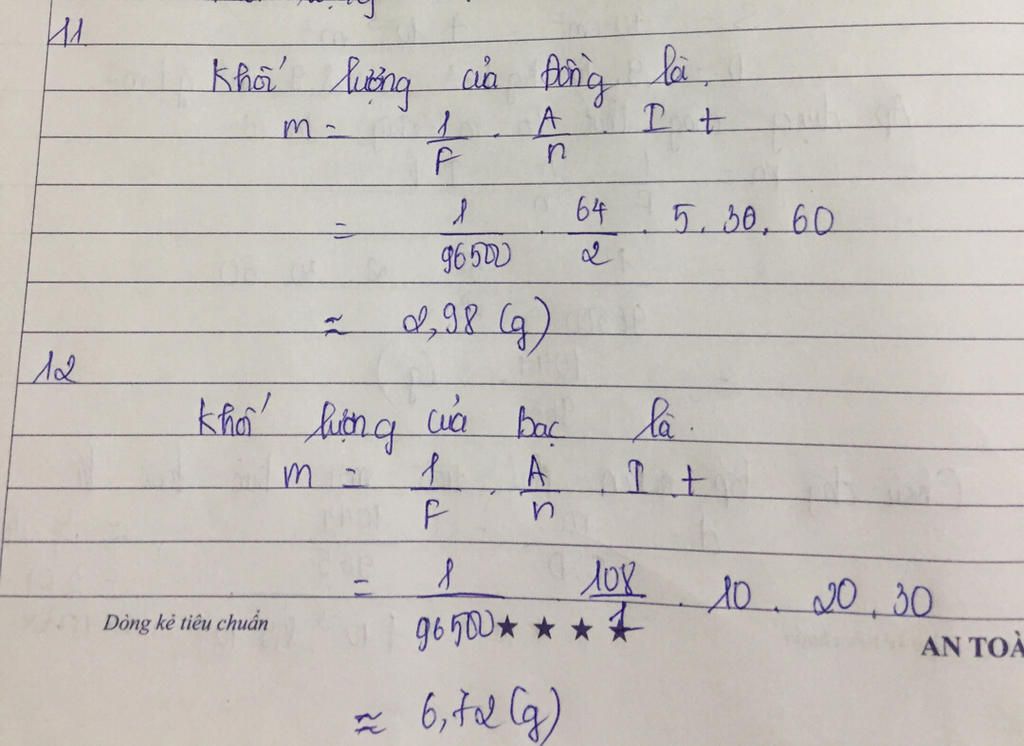 11
Khối lượng của Đồng là.
m = 1/F . A/n . I t
= 1/96500 . 64/2 . 5. 30. 60
≈ 2,98 (g)
12
Khối lượng của bạc là.
m = 1/F . A/n . I . t
= 1/96500 108/1 . 10 . 20. 30
Dòng kẻ tiêu chuẩn ★ ★ ★ ★ AN TOÀ
≈ 6,72 (g)